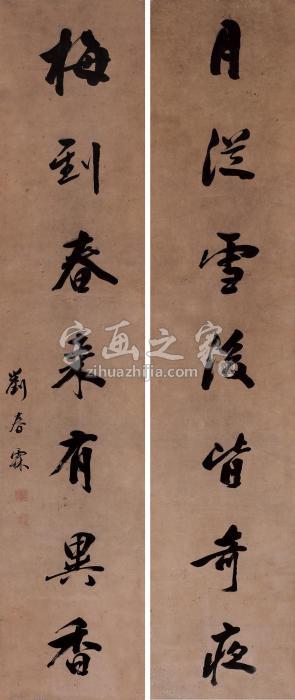 月從雪後皆奇夜
梅到春來有異香
劉春霖
字画之家
zihuazhijia.com